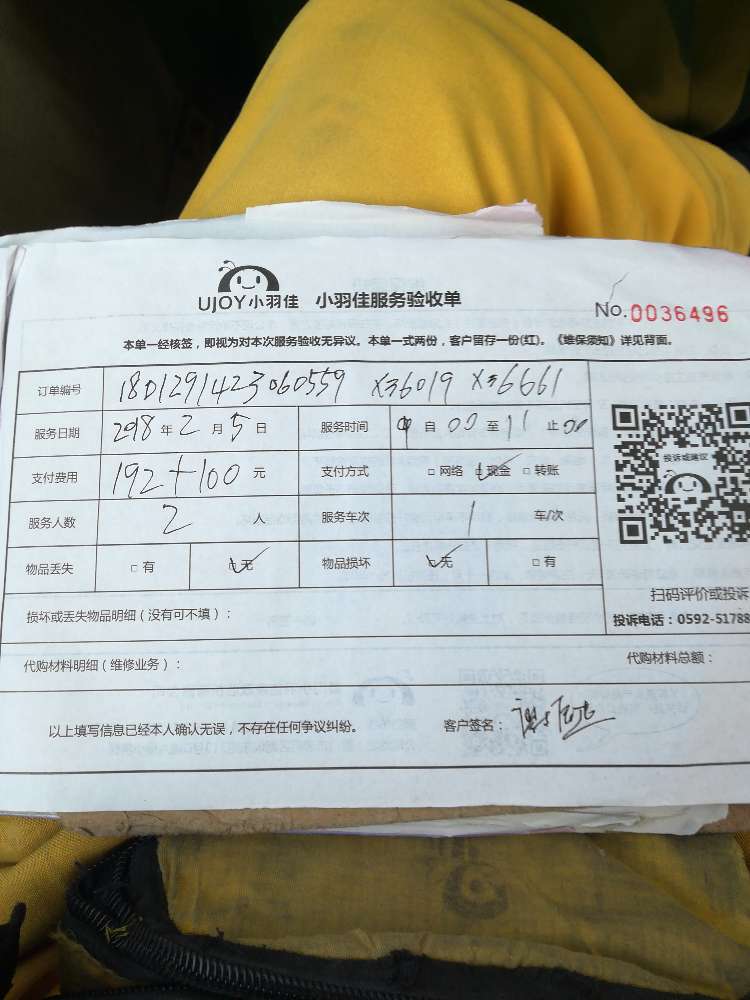 UJOY小羽佳 小羽佳服务验收单
No.0036496
本单一经核签，即视为对本次服务验收无异议。本单一式两份，客户留存一份(红)。《维保须知》详见背面。
订单编号 18D1291423060559 X36019 X36661
服务日期 2018 年 2 月 5 日 服务时间 自 00 至 11 止 00
支付费用 192+100 元 支付方式 □ 网络 ☑ 现金 □ 转账
服务人数 2 人 服务车次 1 车/次
物品丢失 □ 有 ☑ 无 物品损坏 ☑ 无 □ 有
投诉或建议
扫码评价或投诉
损坏或丢失物品明细（没有可不填）：
投诉电话：0592-51788
代购材料明细（维修业务）： 代购材料总额：
以上填写信息已经本人确认无误，不存在任何争议纠纷。 客户签名：